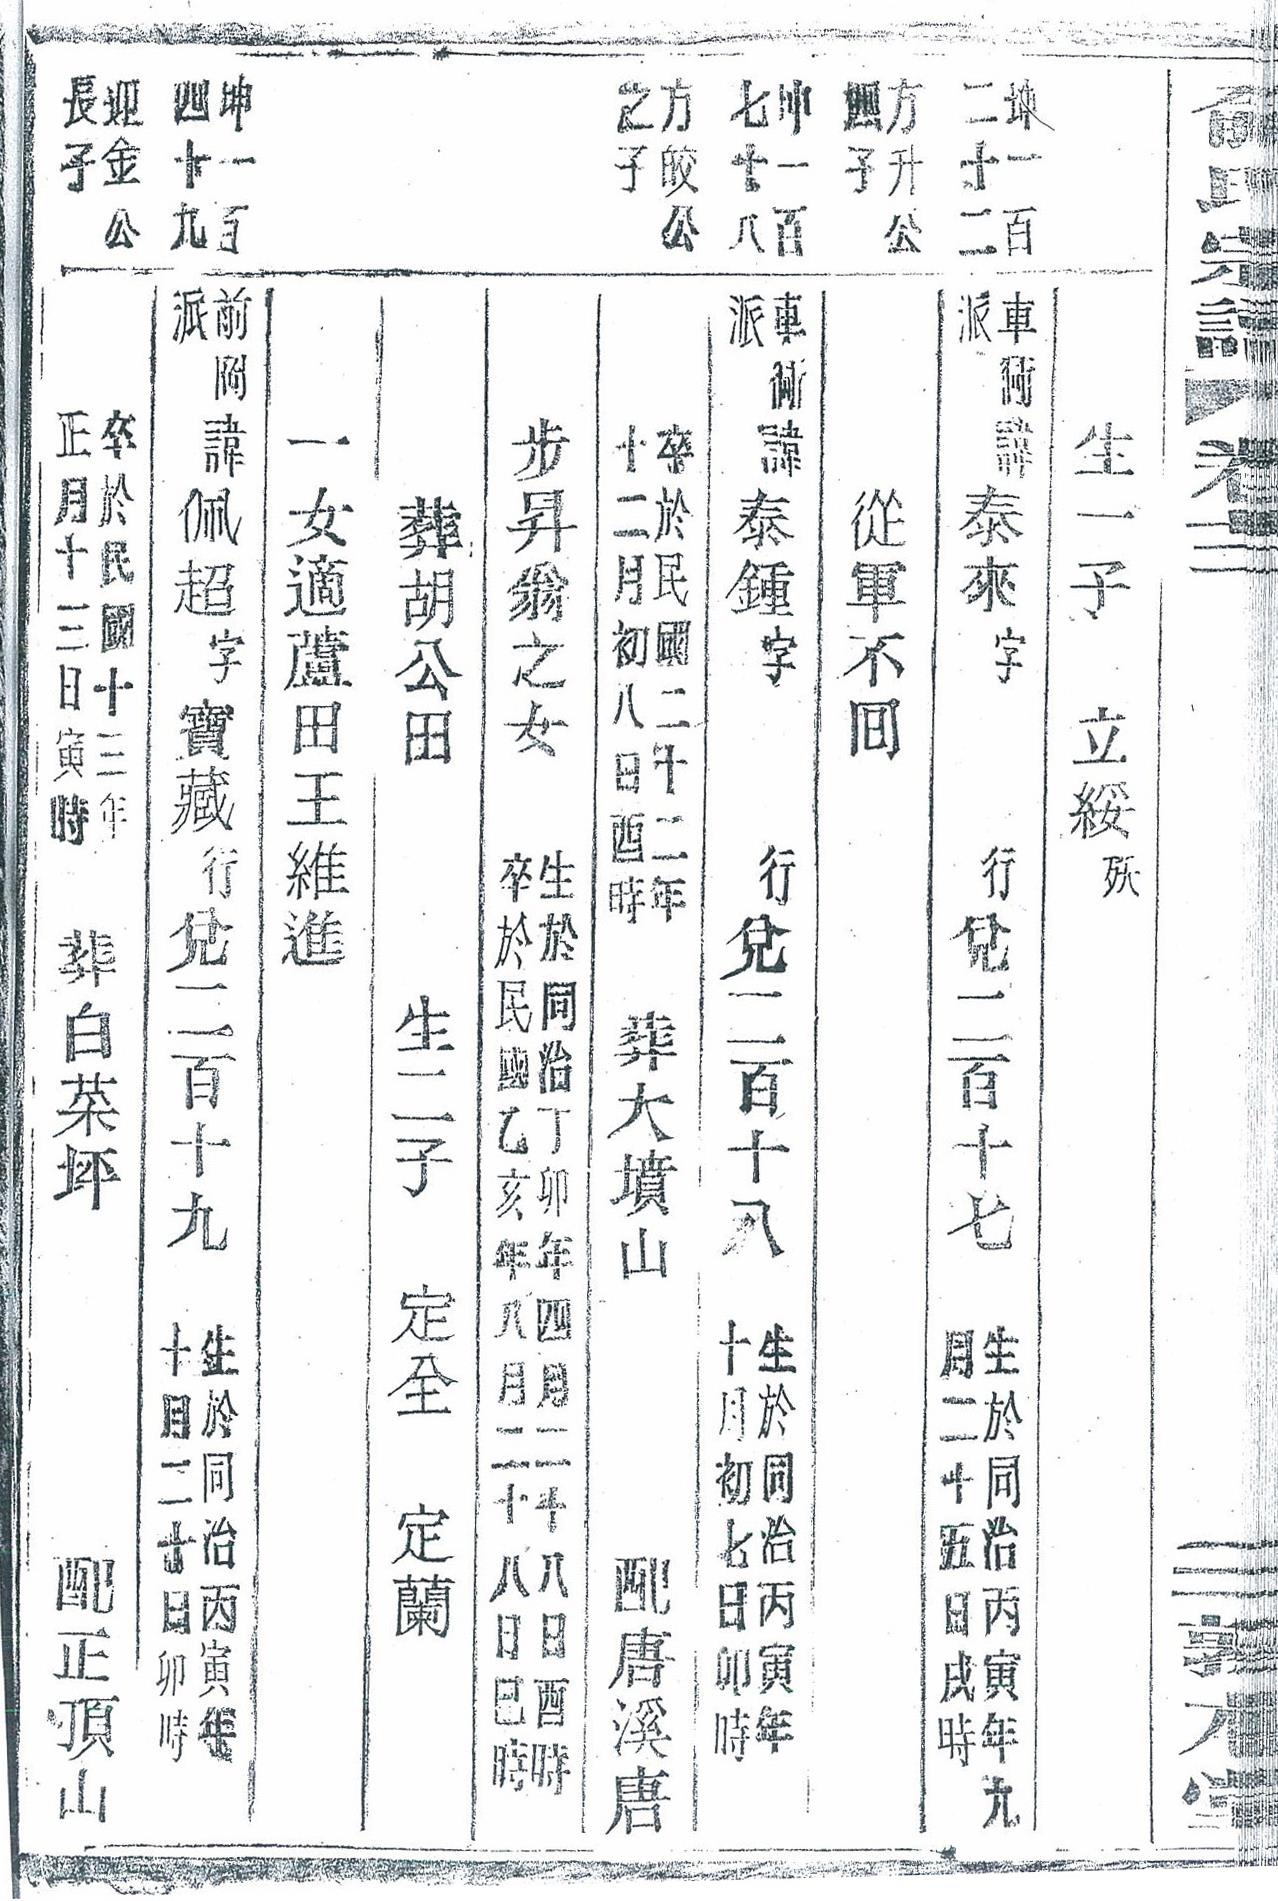 俞氏宗譜 卷二
三 敦 堂
生一子 立綏 殀
坤一百二十二
方升公四子
車衕派
諱泰來 字 行兌二百十七 生於同治丙寅年九月二十五日戌時
從軍不囘
坤一百七十八
方皎公之子
車衕派
諱泰鍾 字 行兌二百十八 生於同治丙寅年十月初七日卯時
卒於民國二十二年十二月初八日酉時 葬大墳山 配唐溪唐
步昇翁之女 生於同治丁卯年四月二十八日酉時卒於民國乙亥年八月二十八日巳時
葬胡公田 生二子 定全 定蘭
一女適蘆田王維進
坤一百四十九
迎金公長子
前岡派
諱佩超 字寶藏 行兌二百十九 生於同治丙寅年十月二十日卯時
卒於民國十三年正月十三日寅時 葬白菜坪 配正頂山